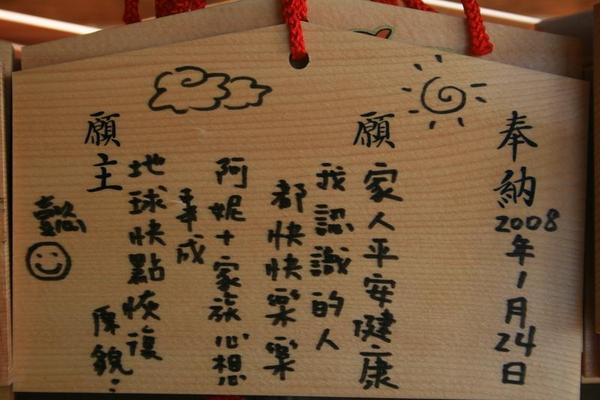 奉納2008年1月24日
願 家人平安健康
我認識的人
都快快樂樂
阿妮十家旅心想
事成
地球快點恢復
原貌：
願主
懿